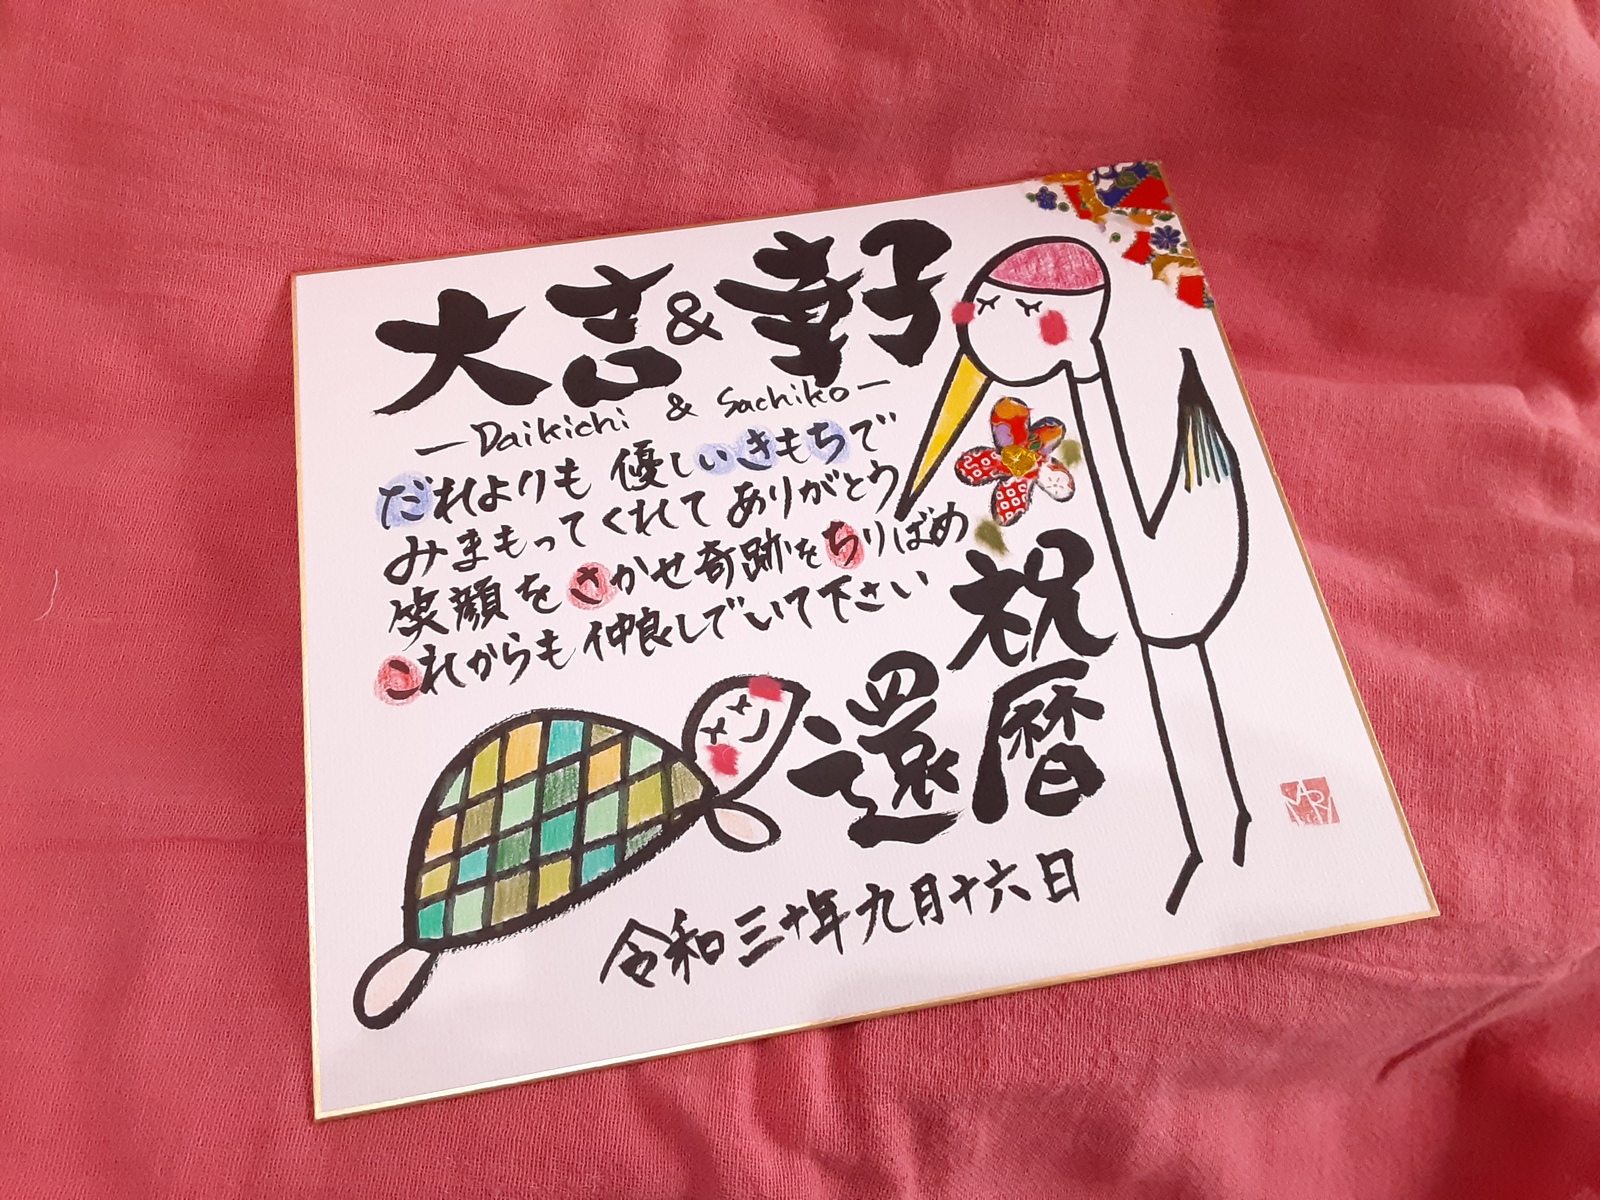 大吉&幸子
ーDaikichi & Sachikoー
だれよりも 優しいきもちで
みまもってくれて ありがとう
笑顔を さかせ奇跡をちりばめ
これからも 仲良しでいて下さい
祝
還暦
令和三十年九月十六日
MARI